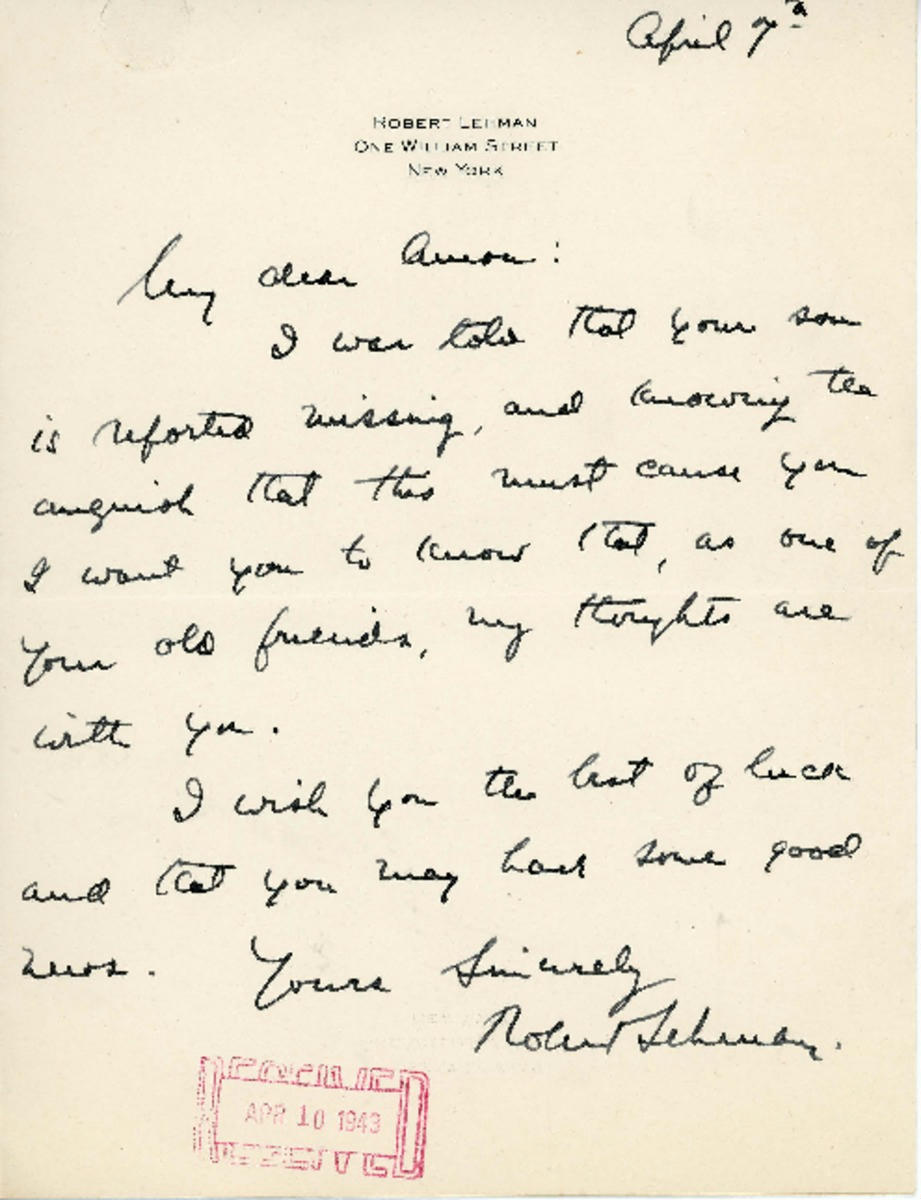 April 7th
ROBERT LEHMAN
ONE WILLIAM STREET
NEW YORK
My dear Amon:
I was told that your son
is reported missing, and knowing the
anguish that this must cause you
I want you to know that, as one of
your old friends, my thoughts are
with you.
I wish you the best of luck
and that you may have some good
news. Yours Sincerely
Robert Lehman.
RECEIVED
APR 10 1943